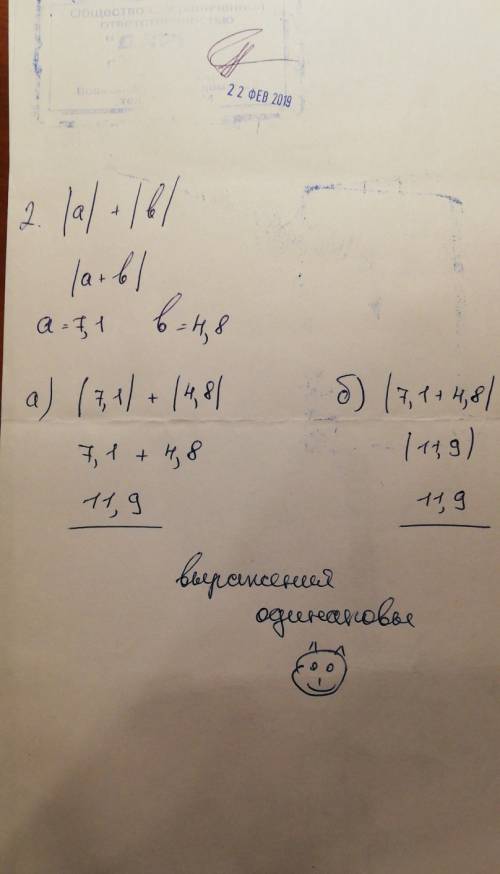 Общество с ограниченной
ответственностью
22 ФЕВ 2019
2. |a| + |b|
|a+b|
a=7,1 b=4,8
а) |7,1| + |4,8|
7,1 + 4,8
11,9
б) |7,1+4,8|
|11,9|
11,9
выражения
одинаковы